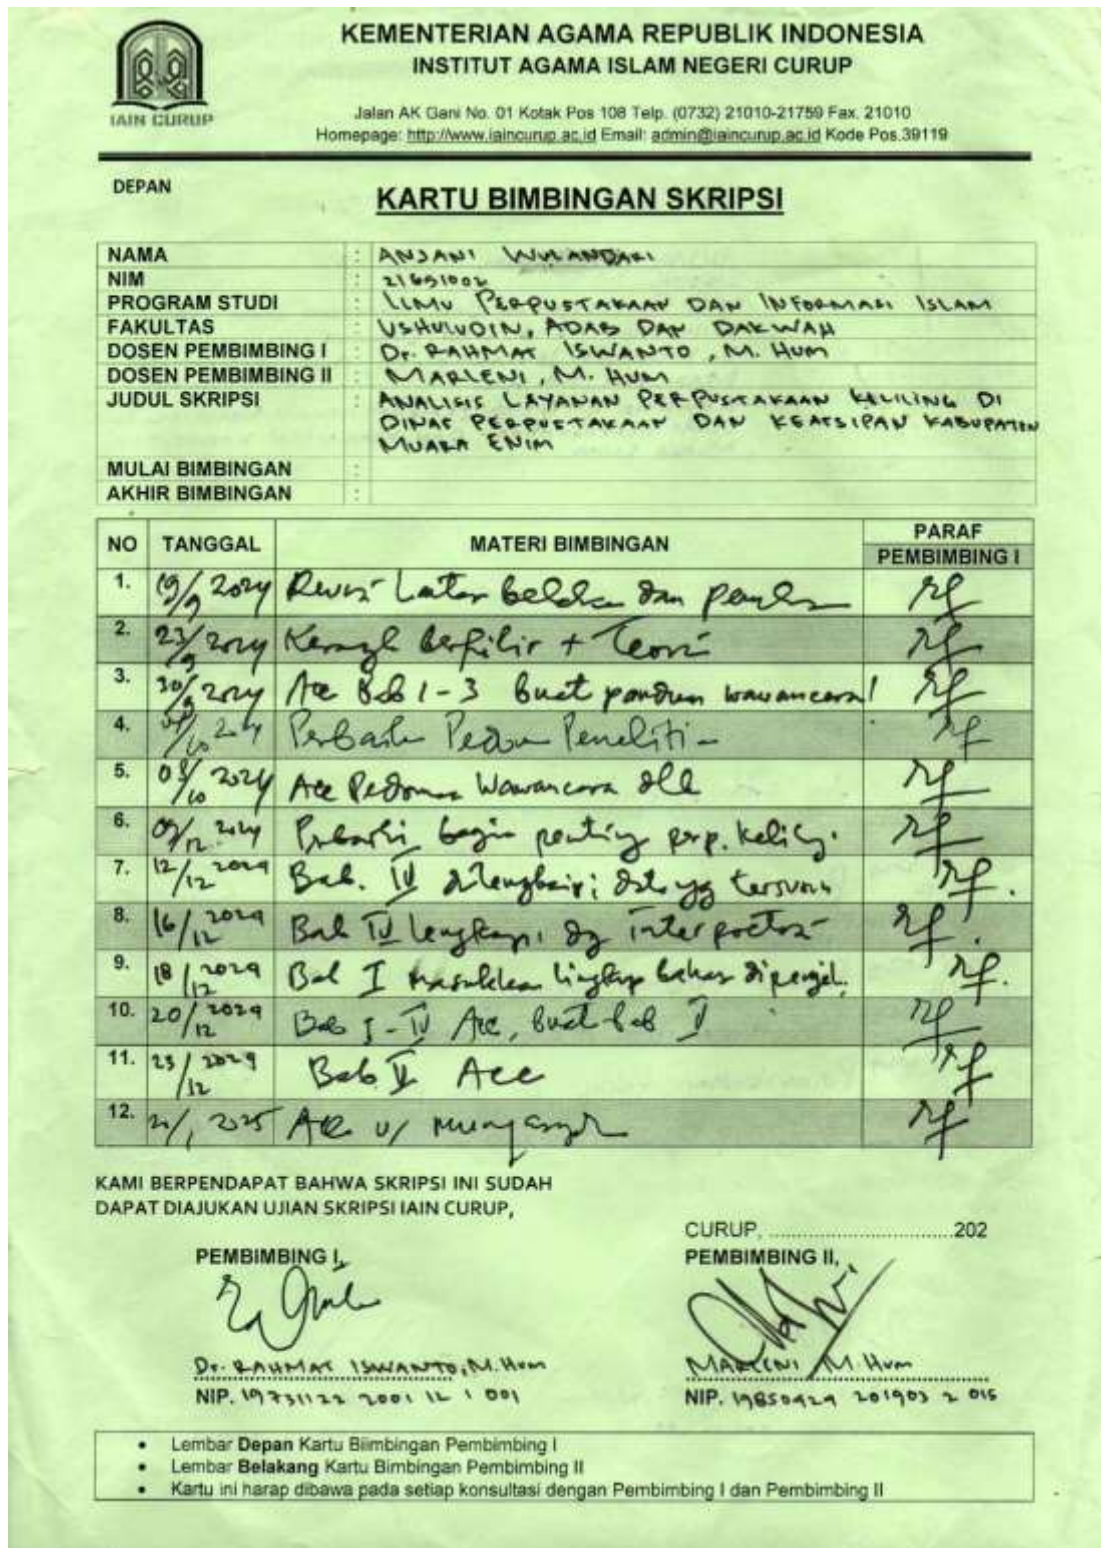 IAIN CURUP
KEMENTERIAN AGAMA REPUBLIK INDONESIA
INSTITUT AGAMA ISLAM NEGERI CURUP
Jalan AK Gani No. 01 Kotak Pos 108 Telp. (0732) 21010-21759 Fax. 21010
Homepage: http://www.iaincurup.ac.id Email: admin@iaincurup.ac.id Kode Pos.39119
DEPAN
KARTU BIMBINGAN SKRIPSI
NAMA : ANJANI WULANDARI
NIM : 21691002
PROGRAM STUDI : ILMU PERPUSTAKAAN DAN INFORMASI ISLAM
FAKULTAS : USHULUDIN, ADAB DAN DAKWAH
DOSEN PEMBIMBING I : Dr. RAHMAT ISWANTO, M. HUM
DOSEN PEMBIMBING II : MARLENI, M. HUM
JUDUL SKRIPSI : ANALISIS LAYANAN PERPUSTAKAAN KELILING DI
DINAS PERPUSTAKAAN DAN KEARSIPAN KABUPATEN
MUARA ENIM
MULAI BIMBINGAN :
AKHIR BIMBINGAN :
NO TANGGAL MATERI BIMBINGAN PARAF
PEMBIMBING I
1. 19/9 2024 Revisi Latar dan
2. 23/9 2024 berfikir + Teori
3. 30/9 2024 Acc Bab 1-3 buat wawancara
4. Pedoman
5. 2024 Acc Pedoman Wawancara dll
6. penting perp.
7. 12/12 2024 Bab. IV
8. 16/12 2024 Bab IV lengkapi dg
9. 18/12 2024 Bab I masukkan bahas
10. 20/12 2024 Bab I-IV Acc, buat bab V
11. 23/12 2024 Bab V Acc
12. 2025 Acc u/
KAMI BERPENDAPAT BAHWA SKRIPSI INI SUDAH
DAPAT DIAJUKAN UJIAN SKRIPSI IAIN CURUP,
CURUP, ..............................202
PEMBIMBING I,
PEMBIMBING II,
Dr. RAHMAT ISWANTO, M. Hum
NIP. 19731122 2001 12 1 001
MARLENI, M. Hum
NIP. 19850424 201903 2 015
• Lembar Depan Kartu Biimbingan Pembimbing I
• Lembar Belakang Kartu Bimbingan Pembimbing II
• Kartu ini harap dibawa pada setiap konsultasi dengan Pembimbing I dan Pembimbing II